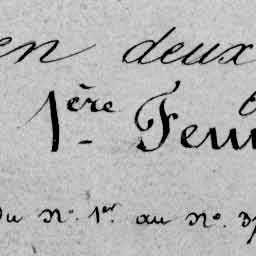 en deux
1ère Feui
Du No. 1er au No. 3